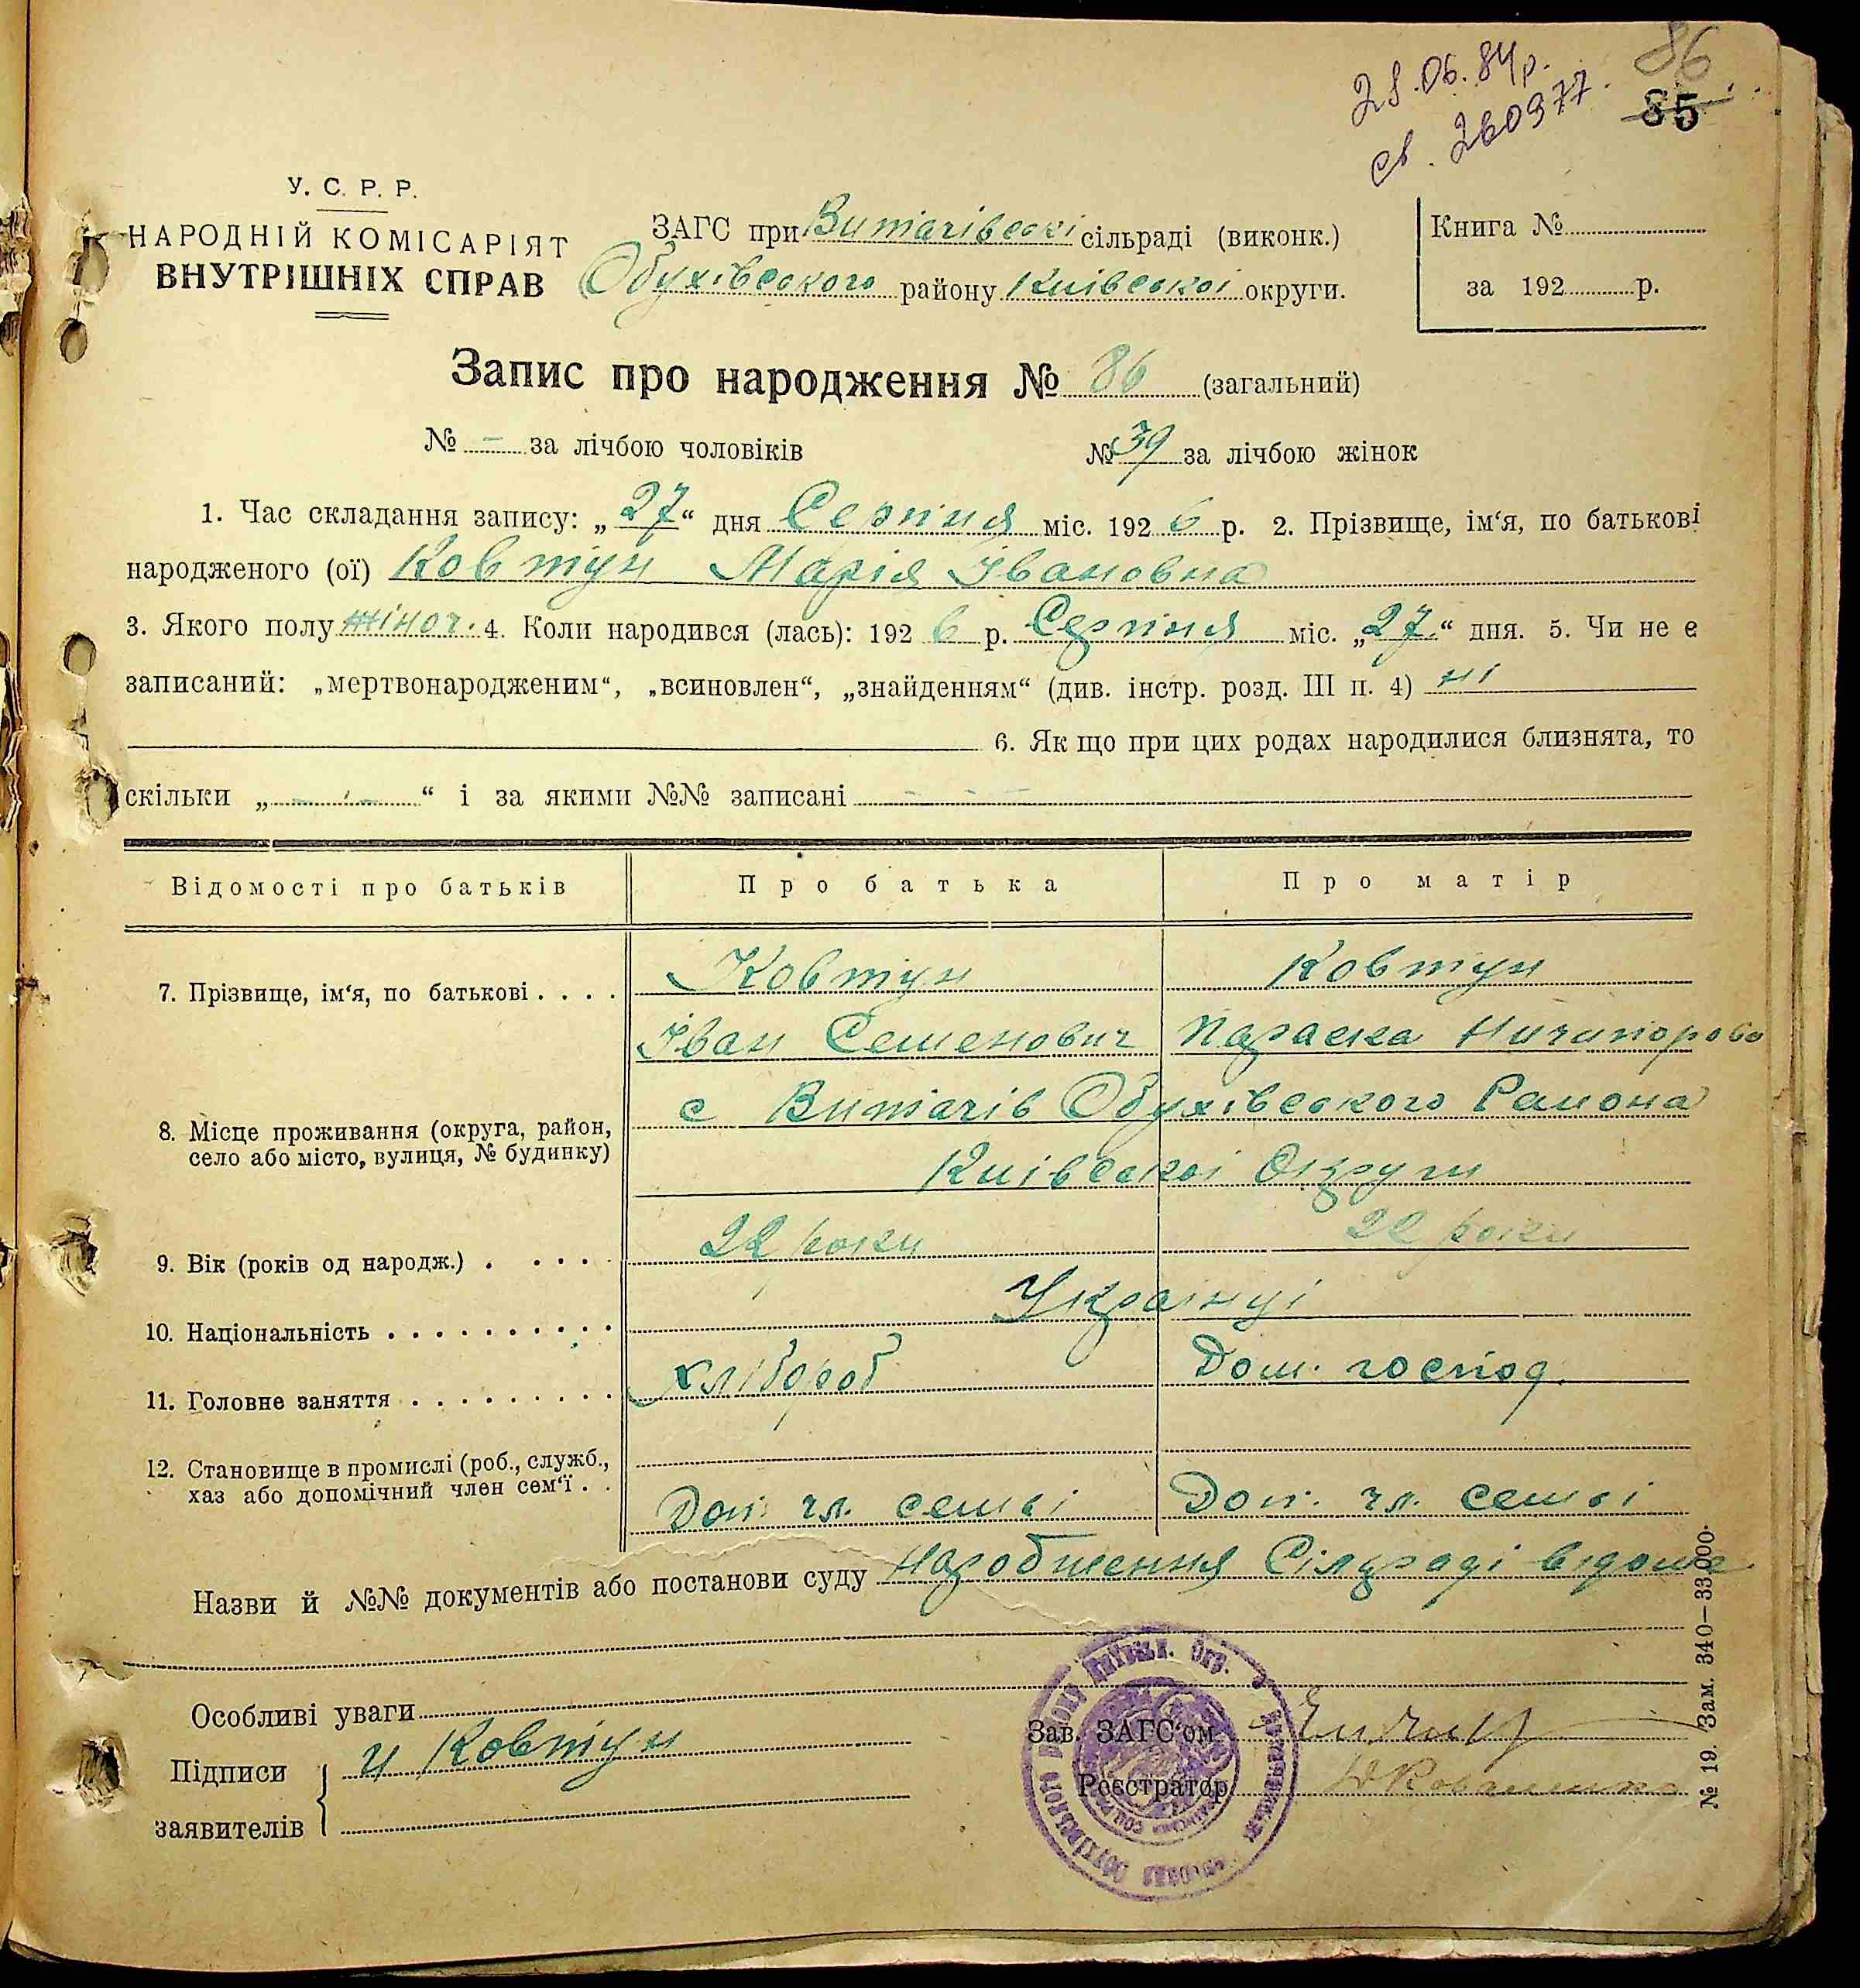 28.06.84р. 86
св. 260977. 85
У. С. Р. Р.
НАРОДНІЙ КОМІСАРІЯТ
ВНУТРІШНІХ СПРАВ
ЗАГС при Витачівескі сільраді (виконк.)
Обухівеского району Киівескоі округи.
Книга №
за 192 р.
Запис про народження № 86 (загальний)
№ - за лічбою чоловіків № 39 за лічбою жінок
1. Час складання запису: „27“ дня Серпня міс. 1926 р. 2. Прізвище, ім‘я, по батькові
народженого (ої) Ковтун Марія Івановна
3. Якого полу жіноч. 4. Коли народився (лась): 1926 р. Серпня міс. „27.“ дня. 5. Чи не є
записаний: „мертвонародженим“, „всиновлен“, „знайденням“ (див. інстр. розд. III п. 4) ні
6. Як що при цих родах народилися близнята, то
скільки „ - - “ і за якими №№ записані - - -
Відомості про батьків Про батька Про матір
7. Прізвище, ім‘я, по батькові . . . . Ковтун Ковтун
Іван Семенович Параска Ничипорова
с Витачів Обухівеского Района
8. Місце проживання (округа, район,
село або місто, вулиця, № будинку)
Киівескоі Округи
9. Вік (років од народж.) . . . . 22 роки 22 роки
10. Національність . . . . . . . . . . Украінці
11. Головне заняття . . . . . . . . . хлібороб Дом. господ.
12. Становище в промислі (роб., служб.,
хаз або допомічний член сем‘ї . .
Доп. чл. семьі Доп. чл. семьі
Назви й №№ документів або постанови суду Сілраді відоме
Особливі уваги
Підписи
заявителів
и Ковтун
Зав. ЗАГС‘ом
Реєстратор
№ 19. Зам. 340—33.000.